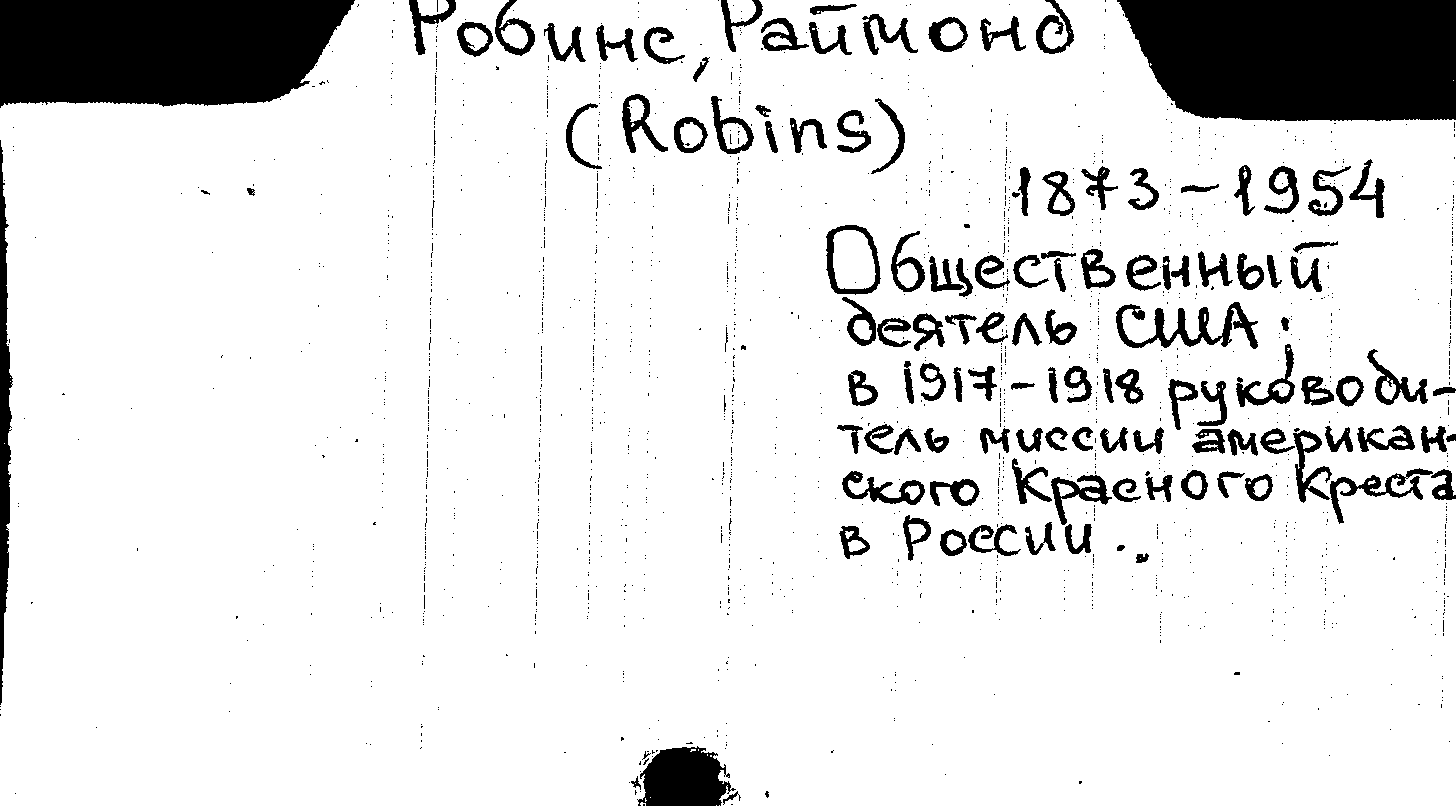 Робинс, Раймонд
(Robins)
1873-1954
Общественный
деятель США;
в 1917-1918 руководи-
тель миссии американ-
ского Красного Креста
в России..